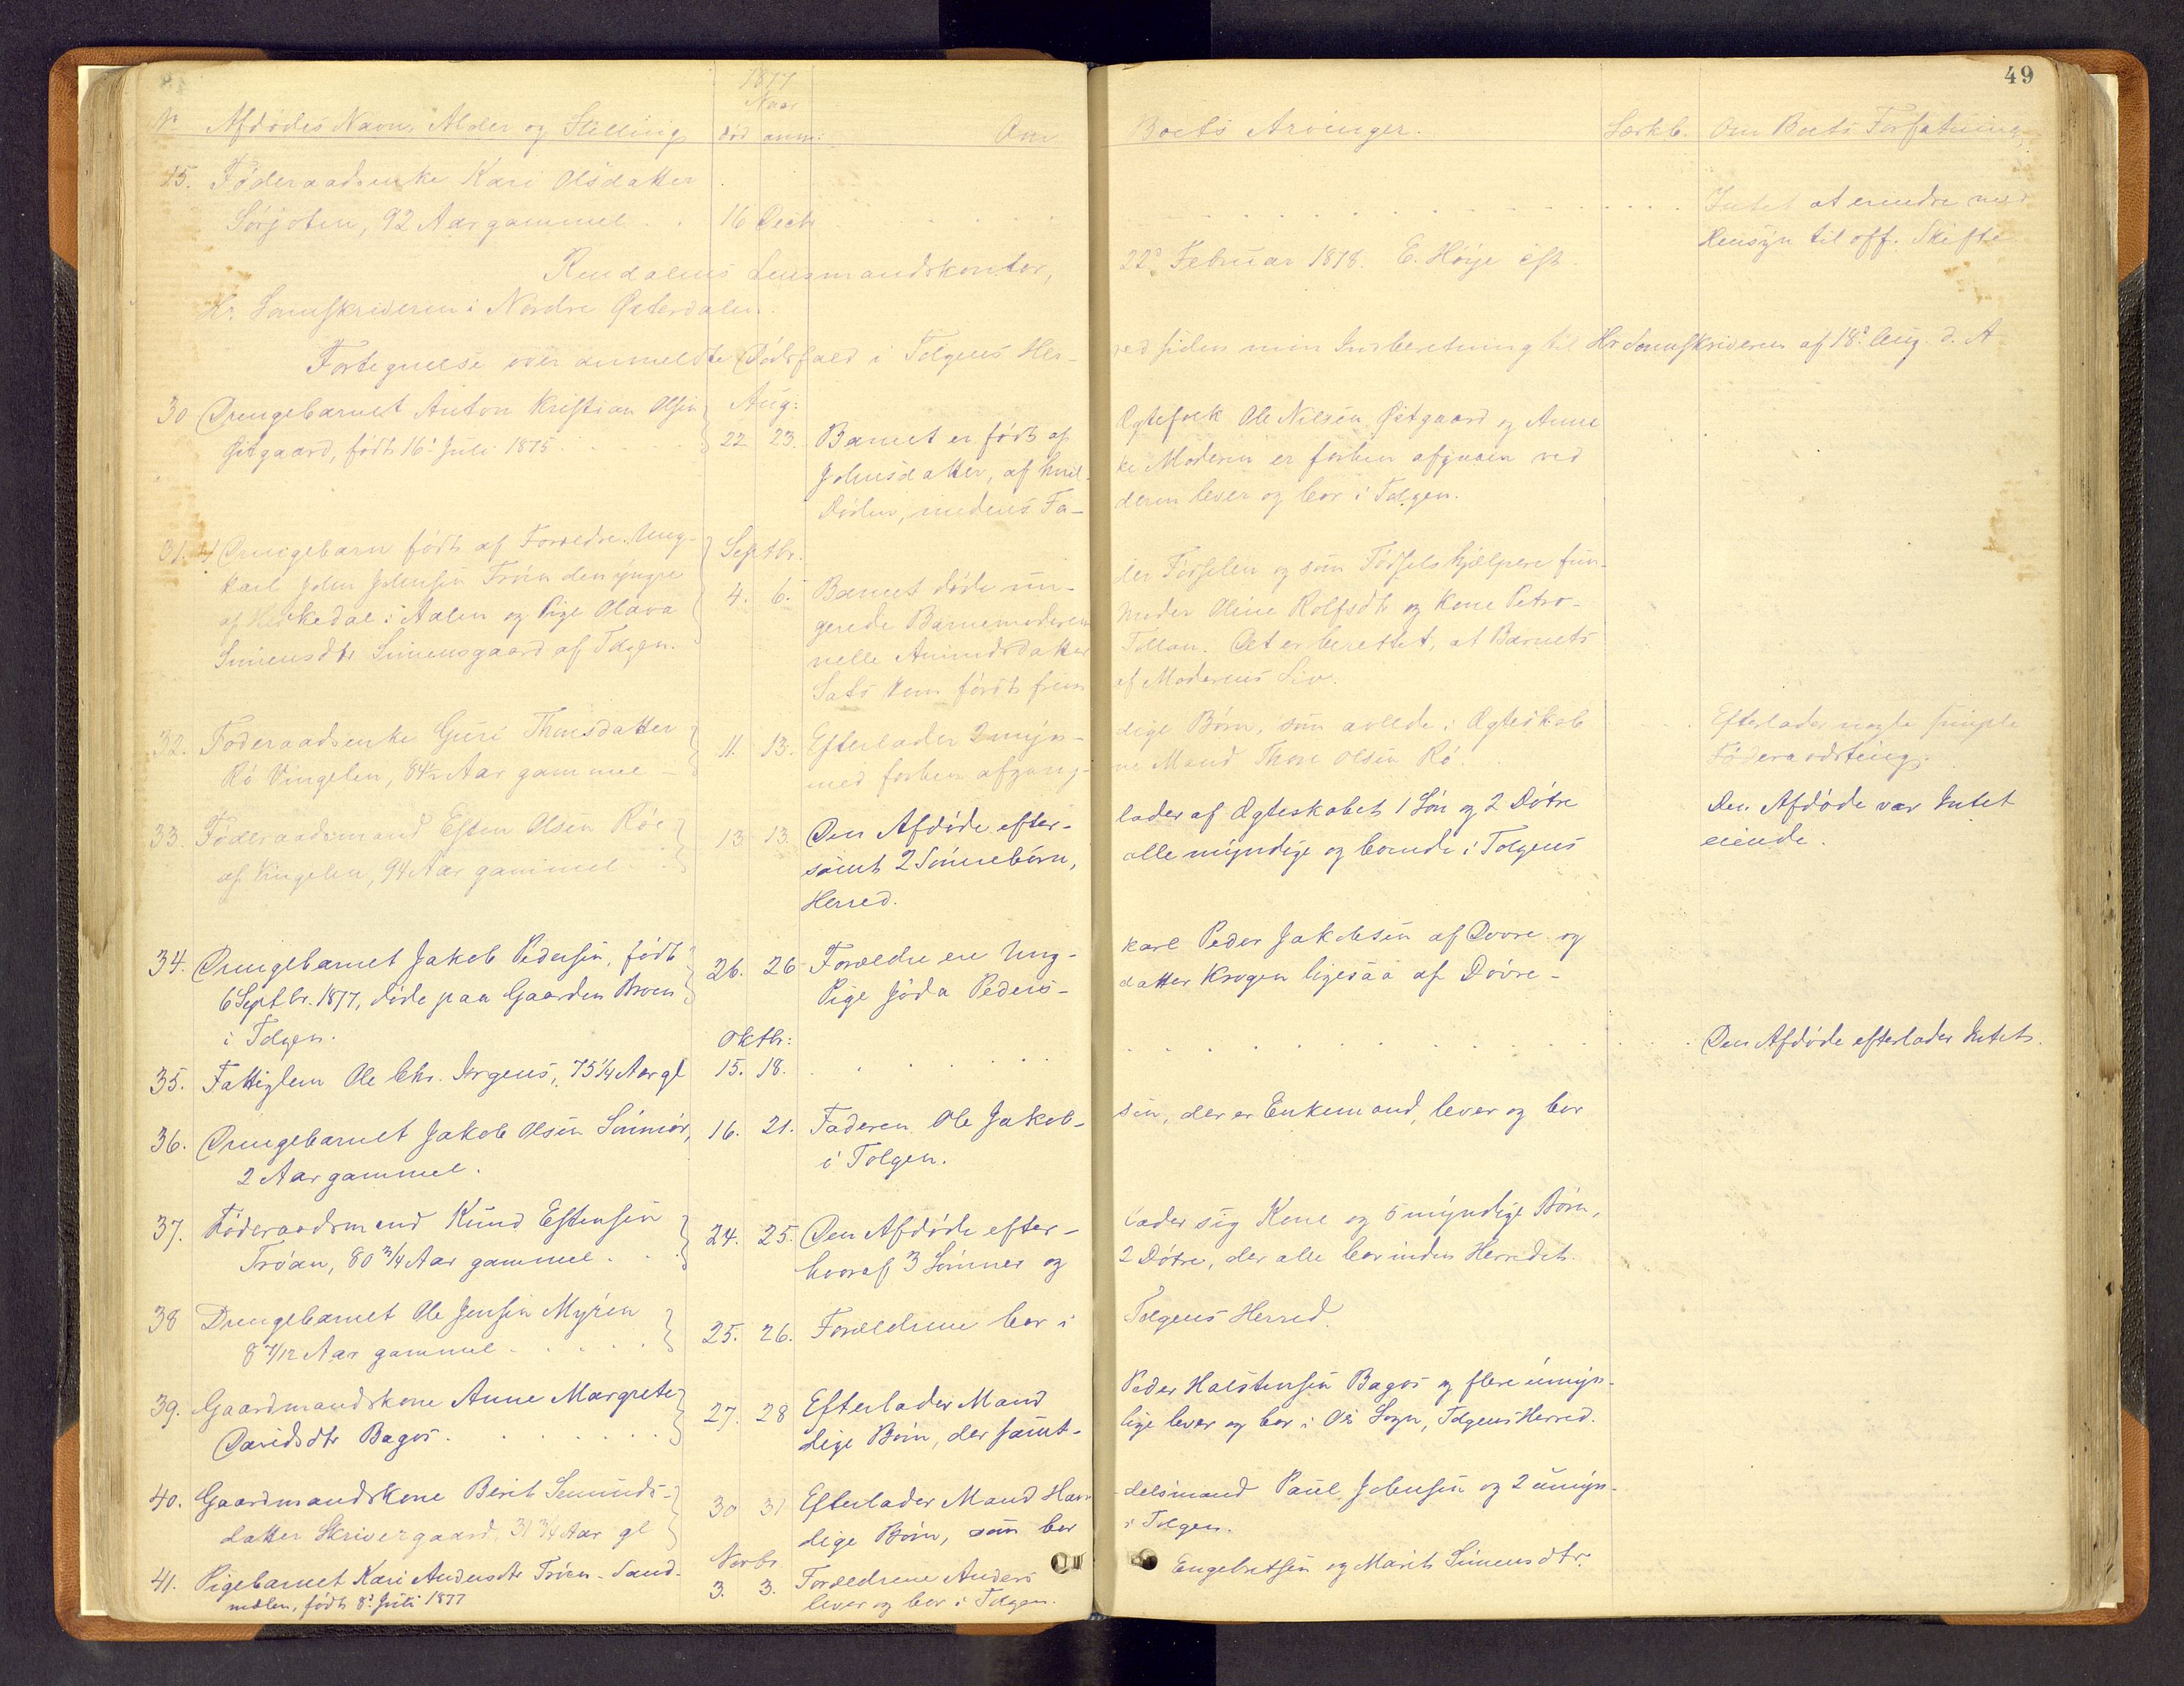 49
1877
Naar
Nr. Afdødes Navn, Alder og Stilling død anm: Om Boets Arvinger. Særkb. Om Boets Forfatning
15. Føderaadsenke Kari Olsdatter
Sørjoten, 92 Aar gammel . . 16 Decbr . . . . Intet at erindre med
Hensyn til off. Skifte
Rendalens Lensmandskontor, 22d Februar 1878. E. Høye cst.
Hr. Sorenskriveren i Nordre Østerdalen.
Fortegnelse over anmeldte Dødsfald i Tolgens Her- red siden min Indberetning til Hr Sorenskriveren af 18d Aug. d. A
30 Drengebarnet Anton Kristian Olsen Aug:
Østgaard, født 16d Juli 1875 . . . 22 23. Barnet er født af Ægtefolk Ole Nilsen Østgaard og Anne
Johnsdatter, af hvil- ke Moderen er forhen afgaaen ved
Døden, medens Fa- deren lever og bor i Tolgen.
31. Et Drengebarn født af Forældre Ung- Septbr.
karl John Johnsen Trøen den yngre 4. 6. Barnet døde un- der Fødselen og som Fødselshjælpere fun-
af Hessekedal i Aalen og Pige Olava gerede Barnemoderens Moder Oline Rolfsdtr og Kone Petro-
Simensdtr Simensgaard af Tolgen. nelle Amundsdatter Tollan. Det er berettet, at Barnets
Lats kun først frem af Moderens Liv.
32. Føderaadsenke Guri Thoresdatter
Rø Vingelen, 84½ Aar gammel 11. 13. Efterlader 2 myn- dige Børn, som avlede i Ægteskab . . Efterlader nogle simple
med forhen afgang- ne Mand Thore Olsen Rø. Føderaadsting.
33. Føderaadsmand Esten Olsen Røe 13. 13. Den Afdøde efter- lader af Ægteskabet 1 Søn og 2 Døtre Den Afdøde var Intet
af Vingelen, 94 Aar gammel samt 2 Sønnebørn, alle myndige og boende i Tolgens eiende.
Herred.
34. Drengebarnet Jakob Pedersen, født 26. 26 Forældre ere Ung- karl Peder Jakobsen af Dovre og
6 Septbr. 1877, døde paa Gaarden Broen Pige Jóda Peders- datter Krogen ligesaa af Dovre-
i Tolgen. Oktbr:
35. Fattiglem Ole Chr. Jørgens, 75¼ Aar gl 15. 18. . . . . Den Afdøde efterlader Intet.
36. Drengebarnet Jakob Olsen Sønmør, 16. 21. Faderen Ole Jakob- sen, der er Enkemand, lever og bor
2 Aar gammel. i Tolgen.
37. Føderaadsmand Knud Estensen 24. 25. Den Afdøde efter- lader sig Kone og 5 myndige Børn,
Trøan, 80 ¾ Aar gammel . . hvoraf 3 Sønner og 2 Døtre, der alle bor inden Herredet.
38 Drengebarnet Ole Jensen Myren 25. 26. Forældrene bor i Tolgens Herred.
8 7/12 Aar gammel . . . . .
39. Gaardmandskone Anne Margrete 27. 28 Efterlader Mand Peder Halstensen Bagos og flere umyn-
Davidsdtr Bagos . . . . . . dige Børn, der samt- lige lever og bor i Os Sogn, Tolgens Herred.
40. Gaardmandskone Berit Semunds- 30 31 Efterlader Mand Han- delsmand Paul Johnsen og 2 umyn-
datter Skrivergaard, 31¾ Aar gl dige Børn, som bor i Tolgen.
Novbr
41. Pigebarnet Kari Andersdtr Trøen-Sand- 3. 3. Forældrene Anders Engebretsen og Marit Simensdtr.
mælen, født 8d Juli 1877 lever og bor i Tolgen.